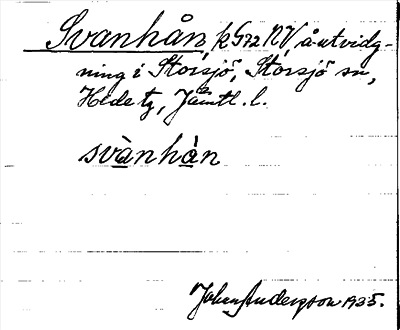 Svanhån, k G72 NV, å-utvidg-
ning i Storsjö, Storsjö sn,
Hede tg, Jämtl. l.
svànhån
John Andersson 1935.